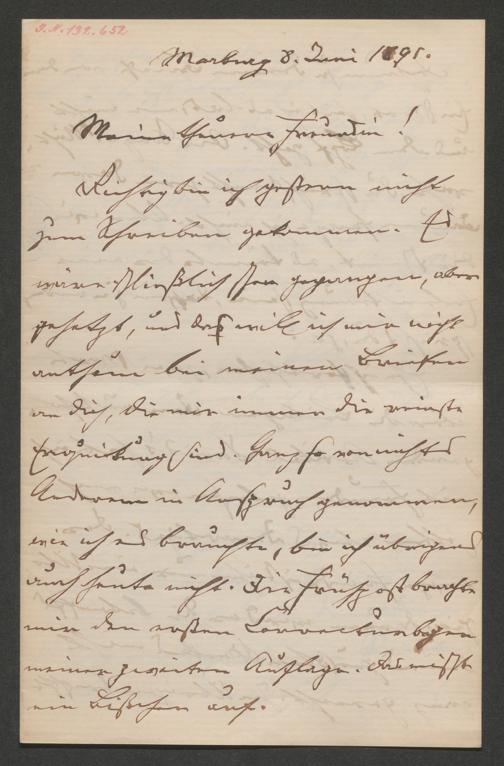 I.N. 192.652
Marburg 8. Juni 1891.
Meine theuere Freundin!
Richtig bin ich gestern nicht
zum Schreiben gekommen. Es
wäre schließlich schon gegangen, aber
gehetzt, und das will ich mir nicht
anthun bei meinen Briefen
an dich, die mir immer die reinste
Erquickung sind. Ganz so von nichts
Anderem in Anspruch genommen,
wie ich es brauchte, bin ich übrigens
auch heute nicht. Die Frühpost brachte
mir den ersten Correcturbogen
meiner zweiten Auflage. Das mischt
ein Bißchen auf.